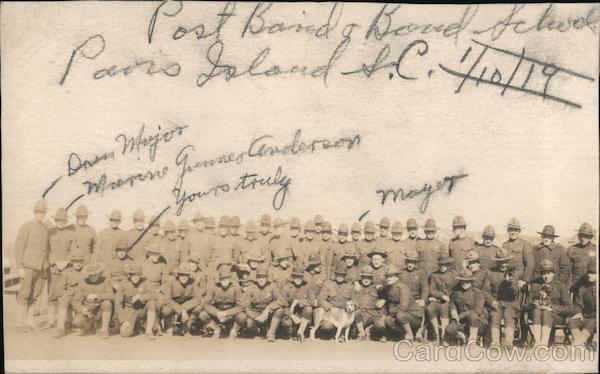 Post Band & Band School
Paris Island S.C. 1/10/19
Drum Major
Marine Gunner Anderson
Yours truly
Mayer
CardCow.com